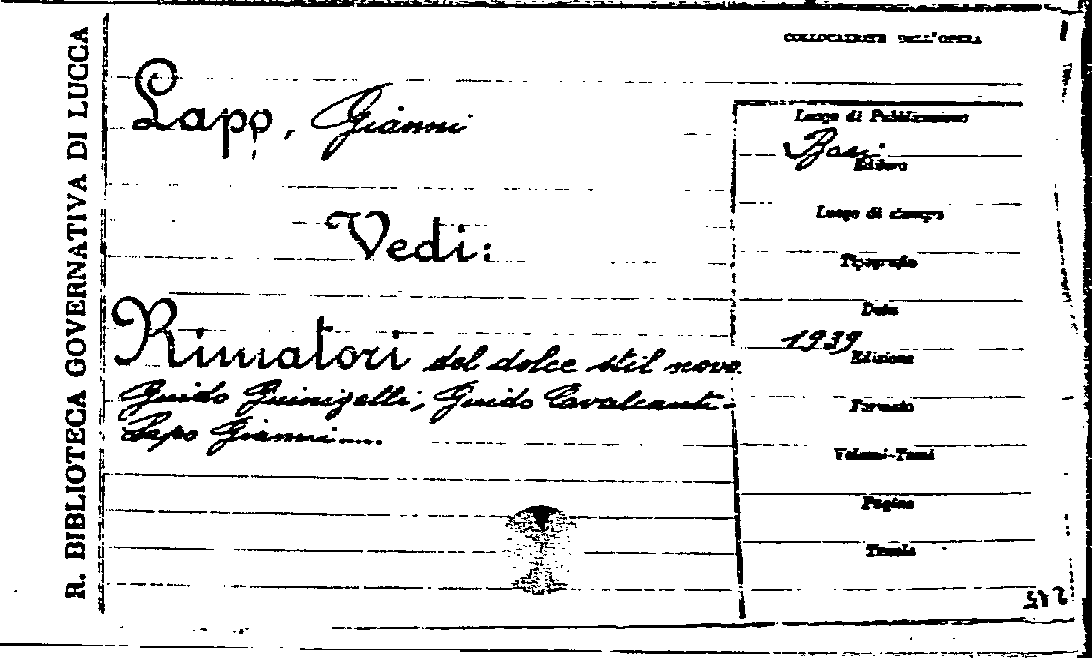 R. BIBLIOTECA GOVERNATIVA DI LUCCA
COLLOCAZIONE DELL'OPERA
Lapo, Gianni
Vedi:
Rimatori del dolce stil novo
Guido Guinizelli, Guido Cavalcanti-
Lapo Gianni....
Luogo di Pubblicazione
Bari
Editore
Luogo di stampa
Tipografia
Data
1939
Edizione
Formato
Volumi-Tomi
Pagine
Tavole